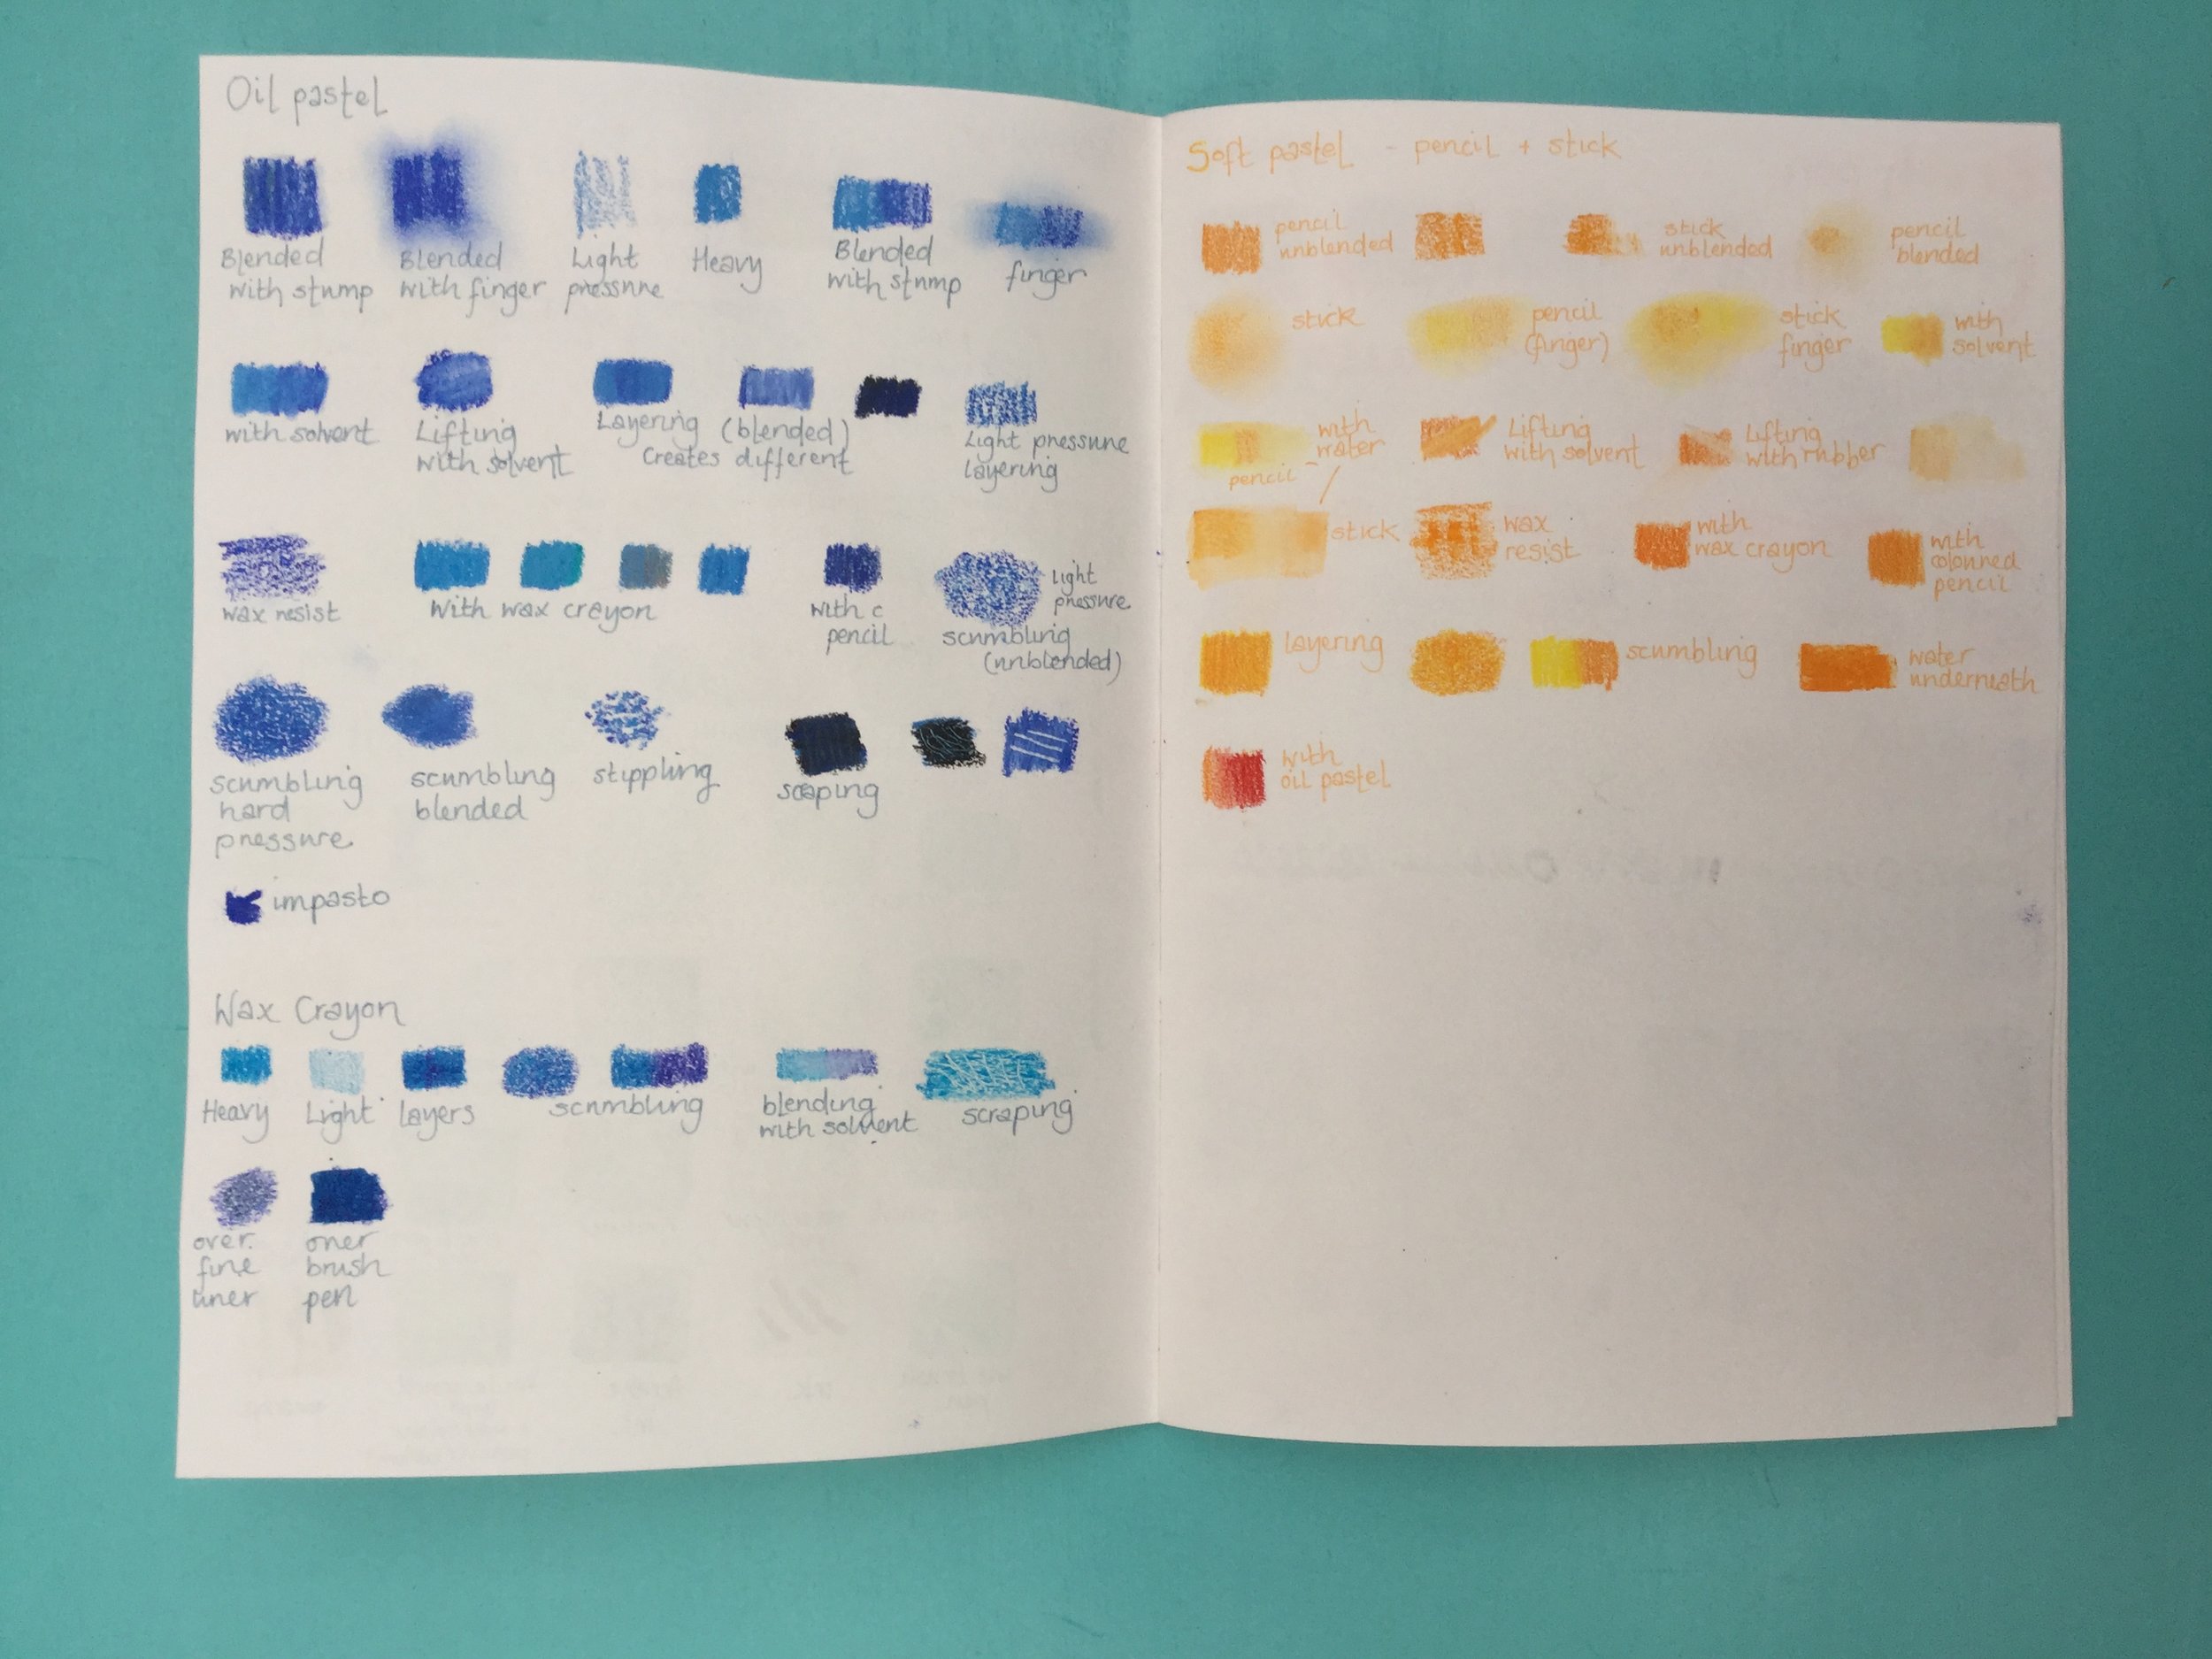 Oil pastel
Blended
with stump
Blended
with finger
Light
pressure
Heavy
Blended
with stump
finger
with solvent
Lifting
with solvent
Layering (blended)
creates different
Light pressure
layering
wax resist
With wax crayon
with c
pencil
light
pressure
scumbling
(unblended)
scumbling
hard
pressure
scumbling
blended
stippling
scaping
impasto
Wax Crayon
Heavy
Light
layers
scumbling
blending
with solvent
scraping
over
fine
liner
over
brush
pen
Soft pastel - pencil + stick
pencil
unblended
stick
unblended
pencil
blended
stick
pencil
(finger)
stick
finger
with
solvent
with
water
pencil
Lifting
with solvent
Lifting
with rubber
stick
wax
resist
with
wax crayon
with
coloured
pencil
layering
scumbling
water
underneath
with
oil pastel